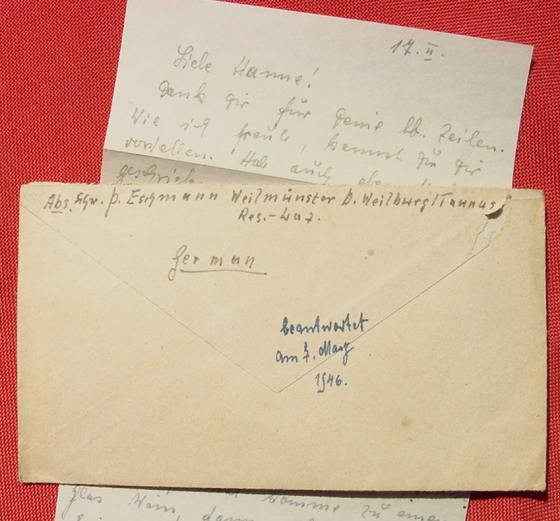 17. II.
Liebe Hanne!
Dank dir für Deine lb. Zeilen.
Wie ich freute, kannst Du dir
vorstellen. Hab auch
geschrieben
Abs. Schw. P. Eschmann Weilmünster b. Weilburg/Taunus
Res.-Laz.
German
beantwortet
am 7. März
1946.
Glas Wein, komme zu einem
dann